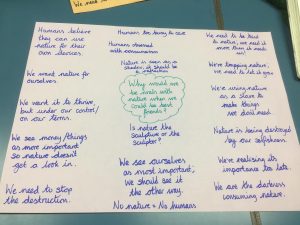 We need
Humans believe
they can use
nature for their
own devices.
We want nature for
ourselves
We want it to thrive,
but under our control/
on our terms.
We see money/things
as more important
so nature doesn't
get a look in.
We need to stop
the destruction.
Humans too busy to care
Humans obsessed
with consumerism
Nature is seen as a
Why would we
be main with
nature when we
could be best
friends?
Is nature the
sculpture or the
sculptor?
We see ourselves
as most important,
we should see it
the other way.
No nature = No humans
We need to be kind
to nature, we need it
more than it needs
We're trapping nature,
we need to let it go.
We're using nature
as a slave to
make things
we don't need
Nature is being destroyed
by our selfishness.
We're realising its
importance too late.
We are the darkness
consuming nature.